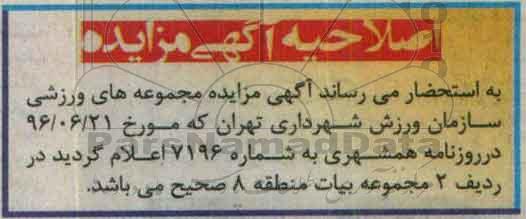 اصلاحیه آگهی مزایده
به استحضار می رساند آگهی مزایده مجموعه های ورزشی
سازمان ورزش شهرداری تهران که مورخ ۹۶/۰۶/۲۱
درروزنامه همشهری به شماره ۷۱۹۶ اعلام گردید در
ردیف ۲ مجموعه بیات منطقه ۸ صحیح می باشد.
ParsNamadData